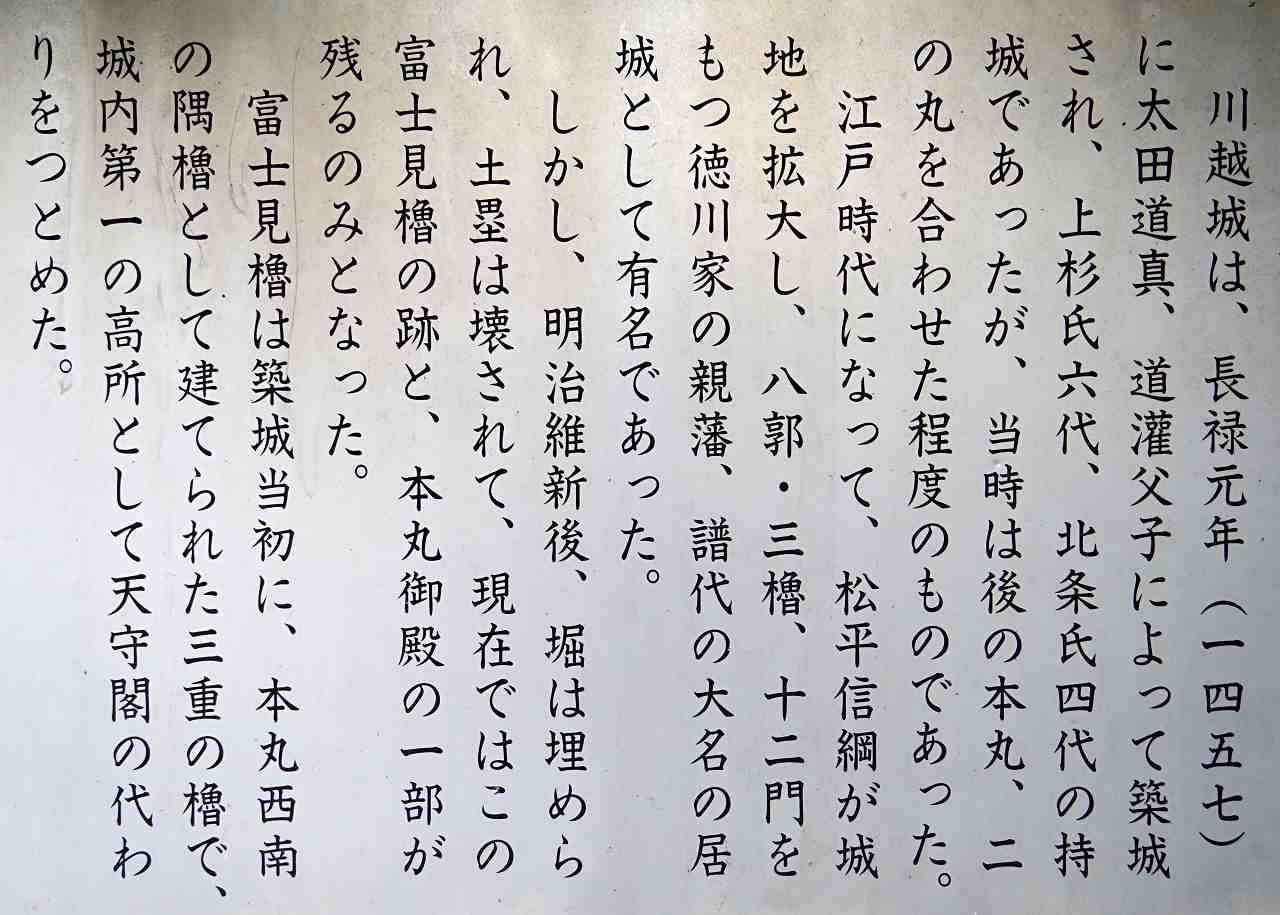 川越城は、長禄元年（一四五七）
に太田道真、道灌父子によって築城
され、上杉氏六代、北条氏四代の持
城であったが、当時は後の本丸、二
の丸を合わせた程度のものであった。
江戸時代になって、松平信綱が城
地を拡大し、八郭・三櫓、十二門を
もつ徳川家の親藩、譜代の大名の居
城として有名であった。
しかし、明治維新後、堀は埋めら
れ、土塁は壊されて、現在ではこの
富士見櫓の跡と、本丸御殿の一部が
残るのみとなった。
富士見櫓は築城当初に、本丸西南
の隅櫓として建てられた三重の櫓で、
城内第一の高所として天守閣の代わ
りをつとめた。